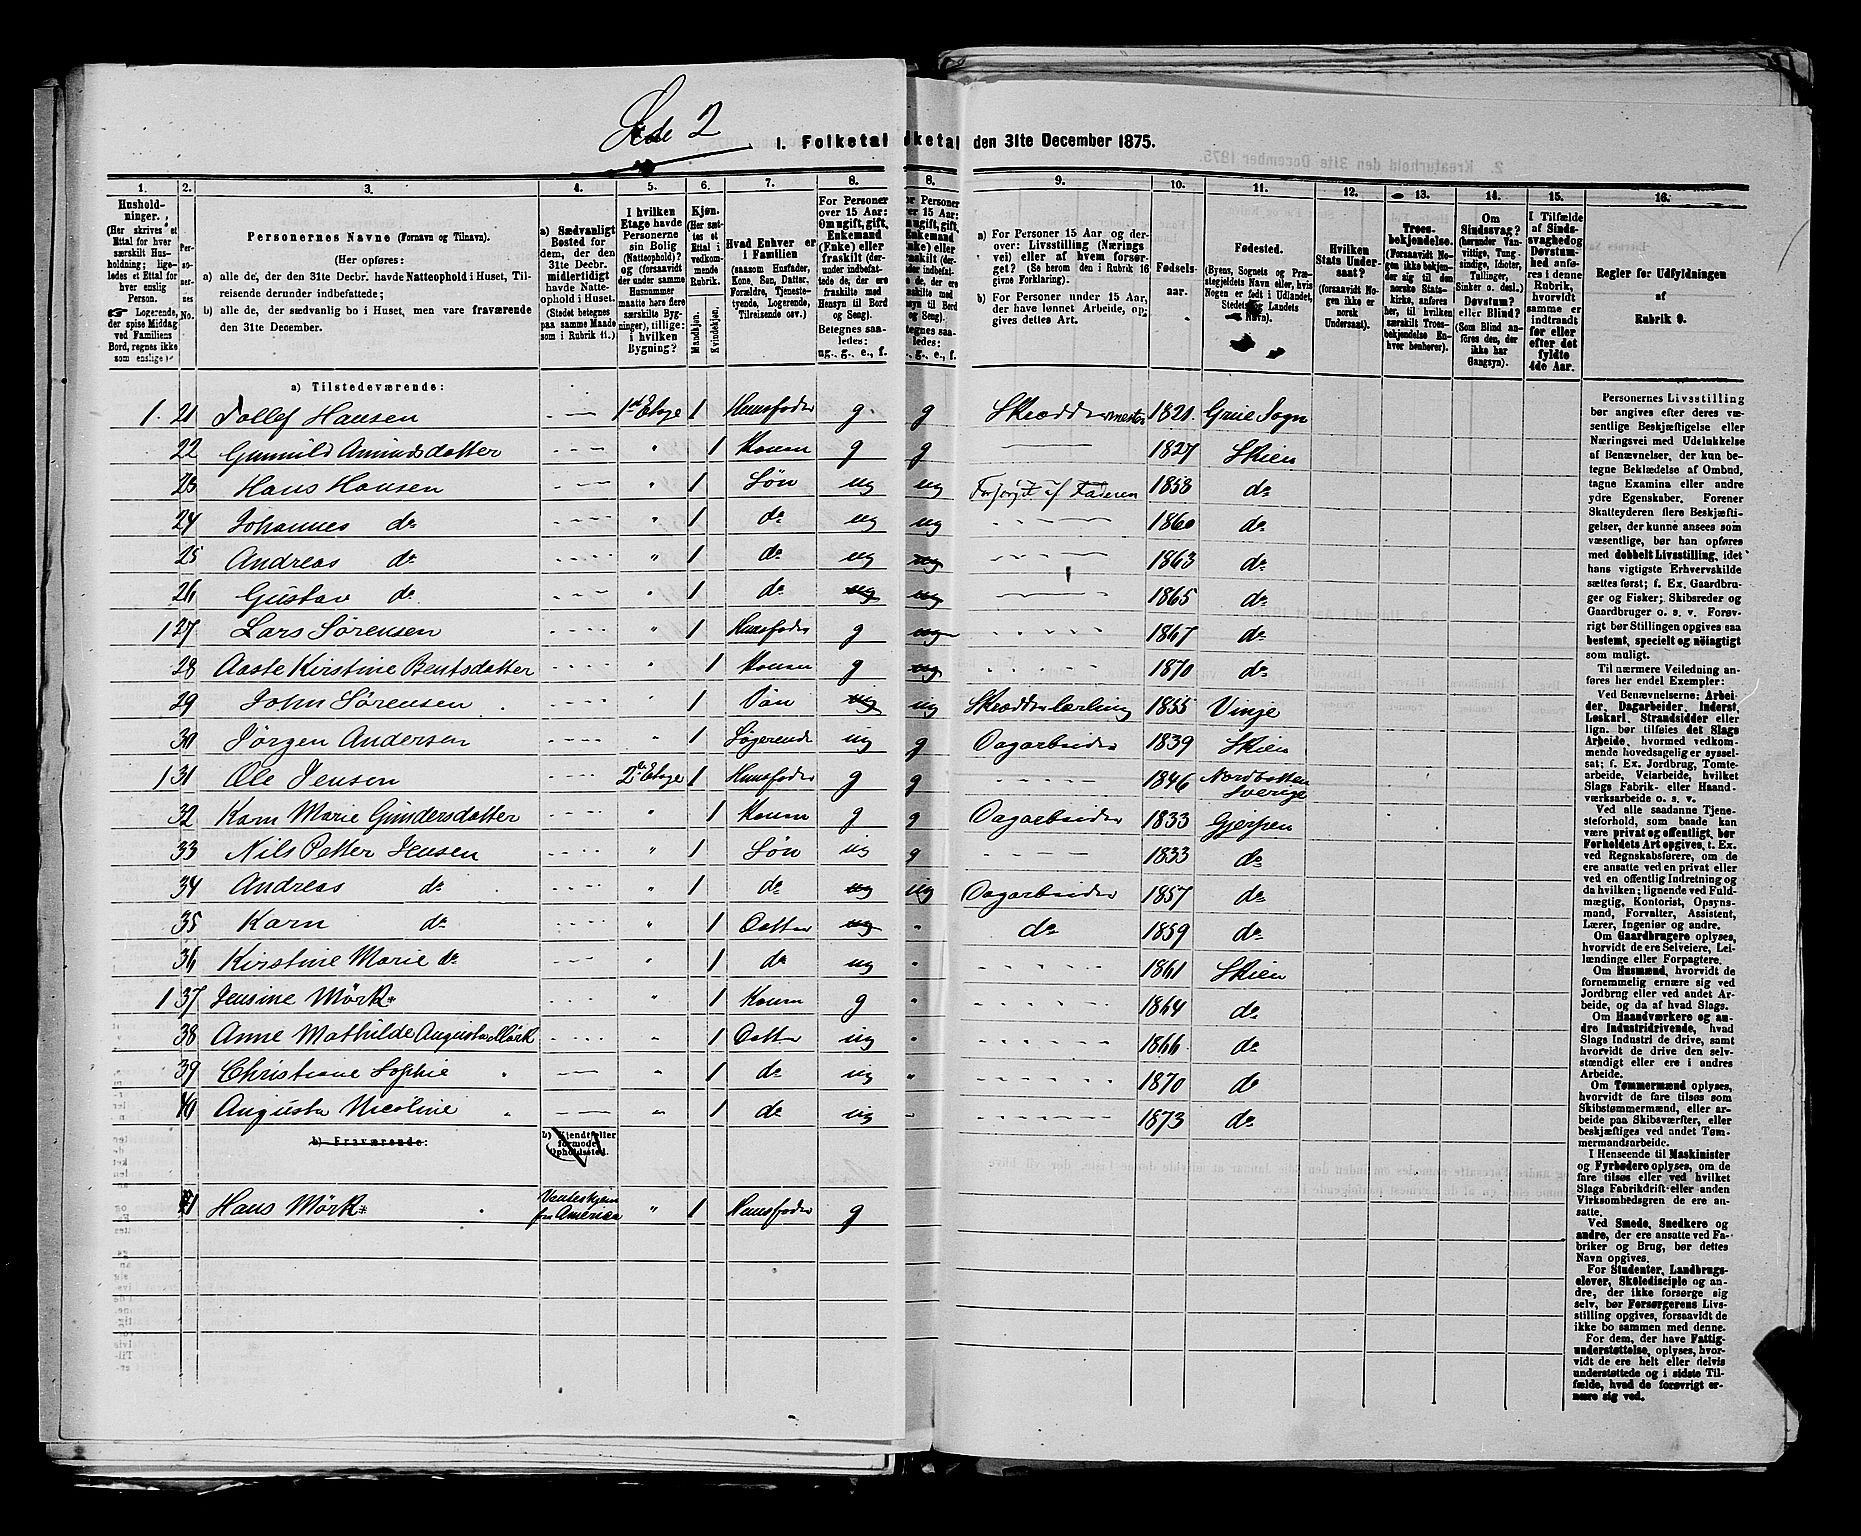 Side 2
1. Folketal
olketal den 31te December 1875.
1. 2. 3. 4. 5. 6. 7. 8.
8. 9. 10. 11. 12. 13. 14. 15. 16.
Husholdninger. (Her skrives et Ettal for hver særskilt Husholdning; ligeledes et Ettal for hver enslig Person. Logerende, der spise Middag ved Familiens Bord, regnes ikke som enslige.)
Personernes No.
Personernes Navne (Fornavn og Tilnavn).
(Her opføres:
a) alle de, der den 31te Decbr. havde Natteophold i Huset, Tilreisende derunder indbefattede;
b) alle de, der sædvanlig bo i Huset, men vare fraværende den 31te December.
a) Sædvanligt Bosted for dem, der den 31te Decbr. midlertidigt havde Natteophold i Huset. (Stedet betegnes paa samme Maade som i Rubrik 11.)
I hvilken Etage havde Personerne sin Bolig (Natteophold)? og (forsaavidt der under samme Husnummer maatte høre flere særskilte Bygninger), tillige: i hvilken Bygning?
Kjøn. (Her sættes et Ettal i vedkommende Rubrik. Mandkjøn. Kvindekjøn.
Hvad Enhver er i Familien (saasom Husfader, Kone, Søn, Datter, Forældre, Tjenestetyende, Logerende, Tilreisende osv.)
For Personer over 15 Aar: Om ugift, gift, Enkemand (Enke) eller fraskilt (derunder indbefattede de, der ere fraskilte med Hensyn til Bord og Seng). Betegnes saaledes: ug., g., e., f.
a) For Personer 15 Aar og derover: Livsstilling (Næringsvei) eller af hvem forsørget? (Se herom den i Rubrik 16 givne Forklaring).
b) For Personer under 15 Aar, der have lønnet Arbeide, opgives dettes Art.
Fødselsaar.
Fødested. (Byens, Sognets og Præstegjeldets Navn eller, hvis Nogen er født i Udlandet, Stedets og Landets Navn).
Hvilken Stats Undersaat? (forsaavidt Nogen ikke er norsk Undersaat).
Troesbekjendelse. (Forsaavidt Nogen ikke bekjender sig til den norske Statskirke, anføres her, til hvilken særskilt Troesbekjendelse Enhver henhører).
Om Sindssvag? (herunder Vanvittige, Tungsindige, Idioter, Tullinger, Sinker o. desl.). Døvstum? eller Blind? (Som Blind anføres den, der ikke har Gangsyn).
I Tilfælde af Sindssvaghed og Døvstumhed anføres i denne Rubrik, hvorvidt samme er indtraadt før eller efter det fyldte 4de Aar.
Regler for Udfyldningen af Rubrik 9.
a) Tilstedeværende:
1. 21 Tollef Hansen 1st Etage 1 Huusfader g g Skræddermester 1821. Grue Sogn
22 Gunnild Amundsdatter " 1 Konen g g 1827 Skien
23 Hans Hansen " 1 Søn ug ug Forsørget af Faderen 1858 do
24 Johannes do " 1 do ug ug 1860 do
25 Andreas do " 1 do ug ug 1863 do
26 Gustav do " 1 do ug ug 1865 do
1 27 Lars Sørensen " 1 Huusfader g ug 1867 do
28 Aaste Kirstine Bentsdatter " 1 Konen g ug 1870 do
29 John Sørensen " 1 Søn ug ug Skrædderlærling 1855 Vinje
30 Jørgen Andersen " 1 Logerende ug g Dagarbeider 1839 Skien
1 31 Ole Jensen 2den Etage 1 Huusfader g g 1846 Nordbotten Sverige
32 Karn Marie Gundersdatter " 1 Konen g g Dagarbeider 1833 Gjerpen
33 Nils Petter Jensen " 1 Søn ug g 1833 do
34 Andreas do " 1 do ug ug Dagarbeider 1857 do
35 Karn do " 1 Datter ug " do 1859 do
36 Kirstine Marie do " 1 do ug " 1861 Skien
1 37 Jensine Mørk " 1 Konen g " 1864 do
38 Anne Mathilde Augusta Mørk " 1 Datter ug " 1866 do
39 Christiane Sophie " " 1 do ug " 1870 do
40 Augusta Nicoline " " 1 do ug " 1873 do
b) Fraværende: b) Kjendt eller formodet Opholdssted.
41 Hans Mørk " Venteshjem fra America " 1 Huusfader g
Personernes Livsstilling bør angives efter deres væsentlige Beskjæftigelse eller Næringsvei med Udelukkelse af Benævnelser, der kun betegne Beklædelse af Ombud, tagne Examina eller andre ydre Egenskaber. Forener Skatteyderen flere Beskjæftigelser, der kunne ansees som væsentlige, bør han opføres med dobbelt Livsstilling, idet hans vigtigste Erhvervskilde sættes først; f. Ex. Gaardbruger og Fisker; Skibsreder og Gaardbruger o. s. v. Forøvrigt bør Stillingen opgives saa bestemt, specielt og nøiagtigt som muligt.
Til nærmere Veiledning anføres her endel Exempler:
Ved Benævnelserne: Arbeider, Dagarbeider, Inderst, Løskarl, Strandsidder eller lign. bør tilføies det Slags Arbeide, hvormed vedkommende hovedsagelig er sysselsat; f. Ex. Jordbrug, Tomtearbeide, Veiarbeide, hvilket Slags Fabrik- eller Haandværksarbeide o. s. v.
Ved alle saadanne Tjenesteforhold, som baade kan være privat og offentligt, bør Forholdets Art opgives, f. Ex. ved Regnskabsførere, om de ere ansatte ved en privat eller ved en offentlig Indretning og da hvilken; lignende ved Fuldmægtig, Kontorist, Opsynsmand, Forvalter, Assistent, Lærer, Ingeniør og andre.
Om Gaardbrugere oplyses, hvorvidt de ere Selveiere, Leilændinge eller Forpagtere.
Om Husmænd, hvorvidt de fornemmelig ernære sig ved Jordbrug eller ved andet Arbeide, og da af hvad Slags.
Om Haandværkere og andre Industridrivende, hvad Slags Industri de drive, samt hvorvidt de drive den selvstændigt eller ere i andres Arbeide.
Om Tømmermænd oplyses, hvorvidt de fare tilsøs som Skibstømmermænd, eller arbeide paa Skibsværfter, eller beskjæftiges ved andet Tømmermandsarbeide.
I Henseende til Maskinister og Fyrbødere oplyses, om de fare tilsøs eller ved hvilket Slags Fabrikdrift eller anden Virksomhedsgren de ere ansatte.
Ved Smede, Snedkere og andre, der ere ansatte ved Fabriker og Brug, bør dettes Navn opgives.
For Studenter, Landbrugselever, Skoledisciple og andre, der ikke forsørge sig selv, bør Forsørgerens Livsstilling opgives, forsaavidt de ikke bo sammen med denne.
For dem, der have Fattigunderstøttelse, oplyses, hvorvidt de ere helt eller delvis understøttede og i sidste Tilfælde, hvad de forøvrigt ernære sig ved.